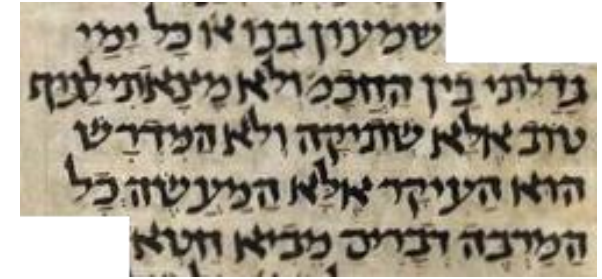 שמעון בנו או כל ימיי
גדלתי בין החכמ' ולא מצאתי לגוף
טוב אלא שתיקה ולא המדרש
הוא העיקר אלא המעשה כל
המרבה דברים מביא חטא